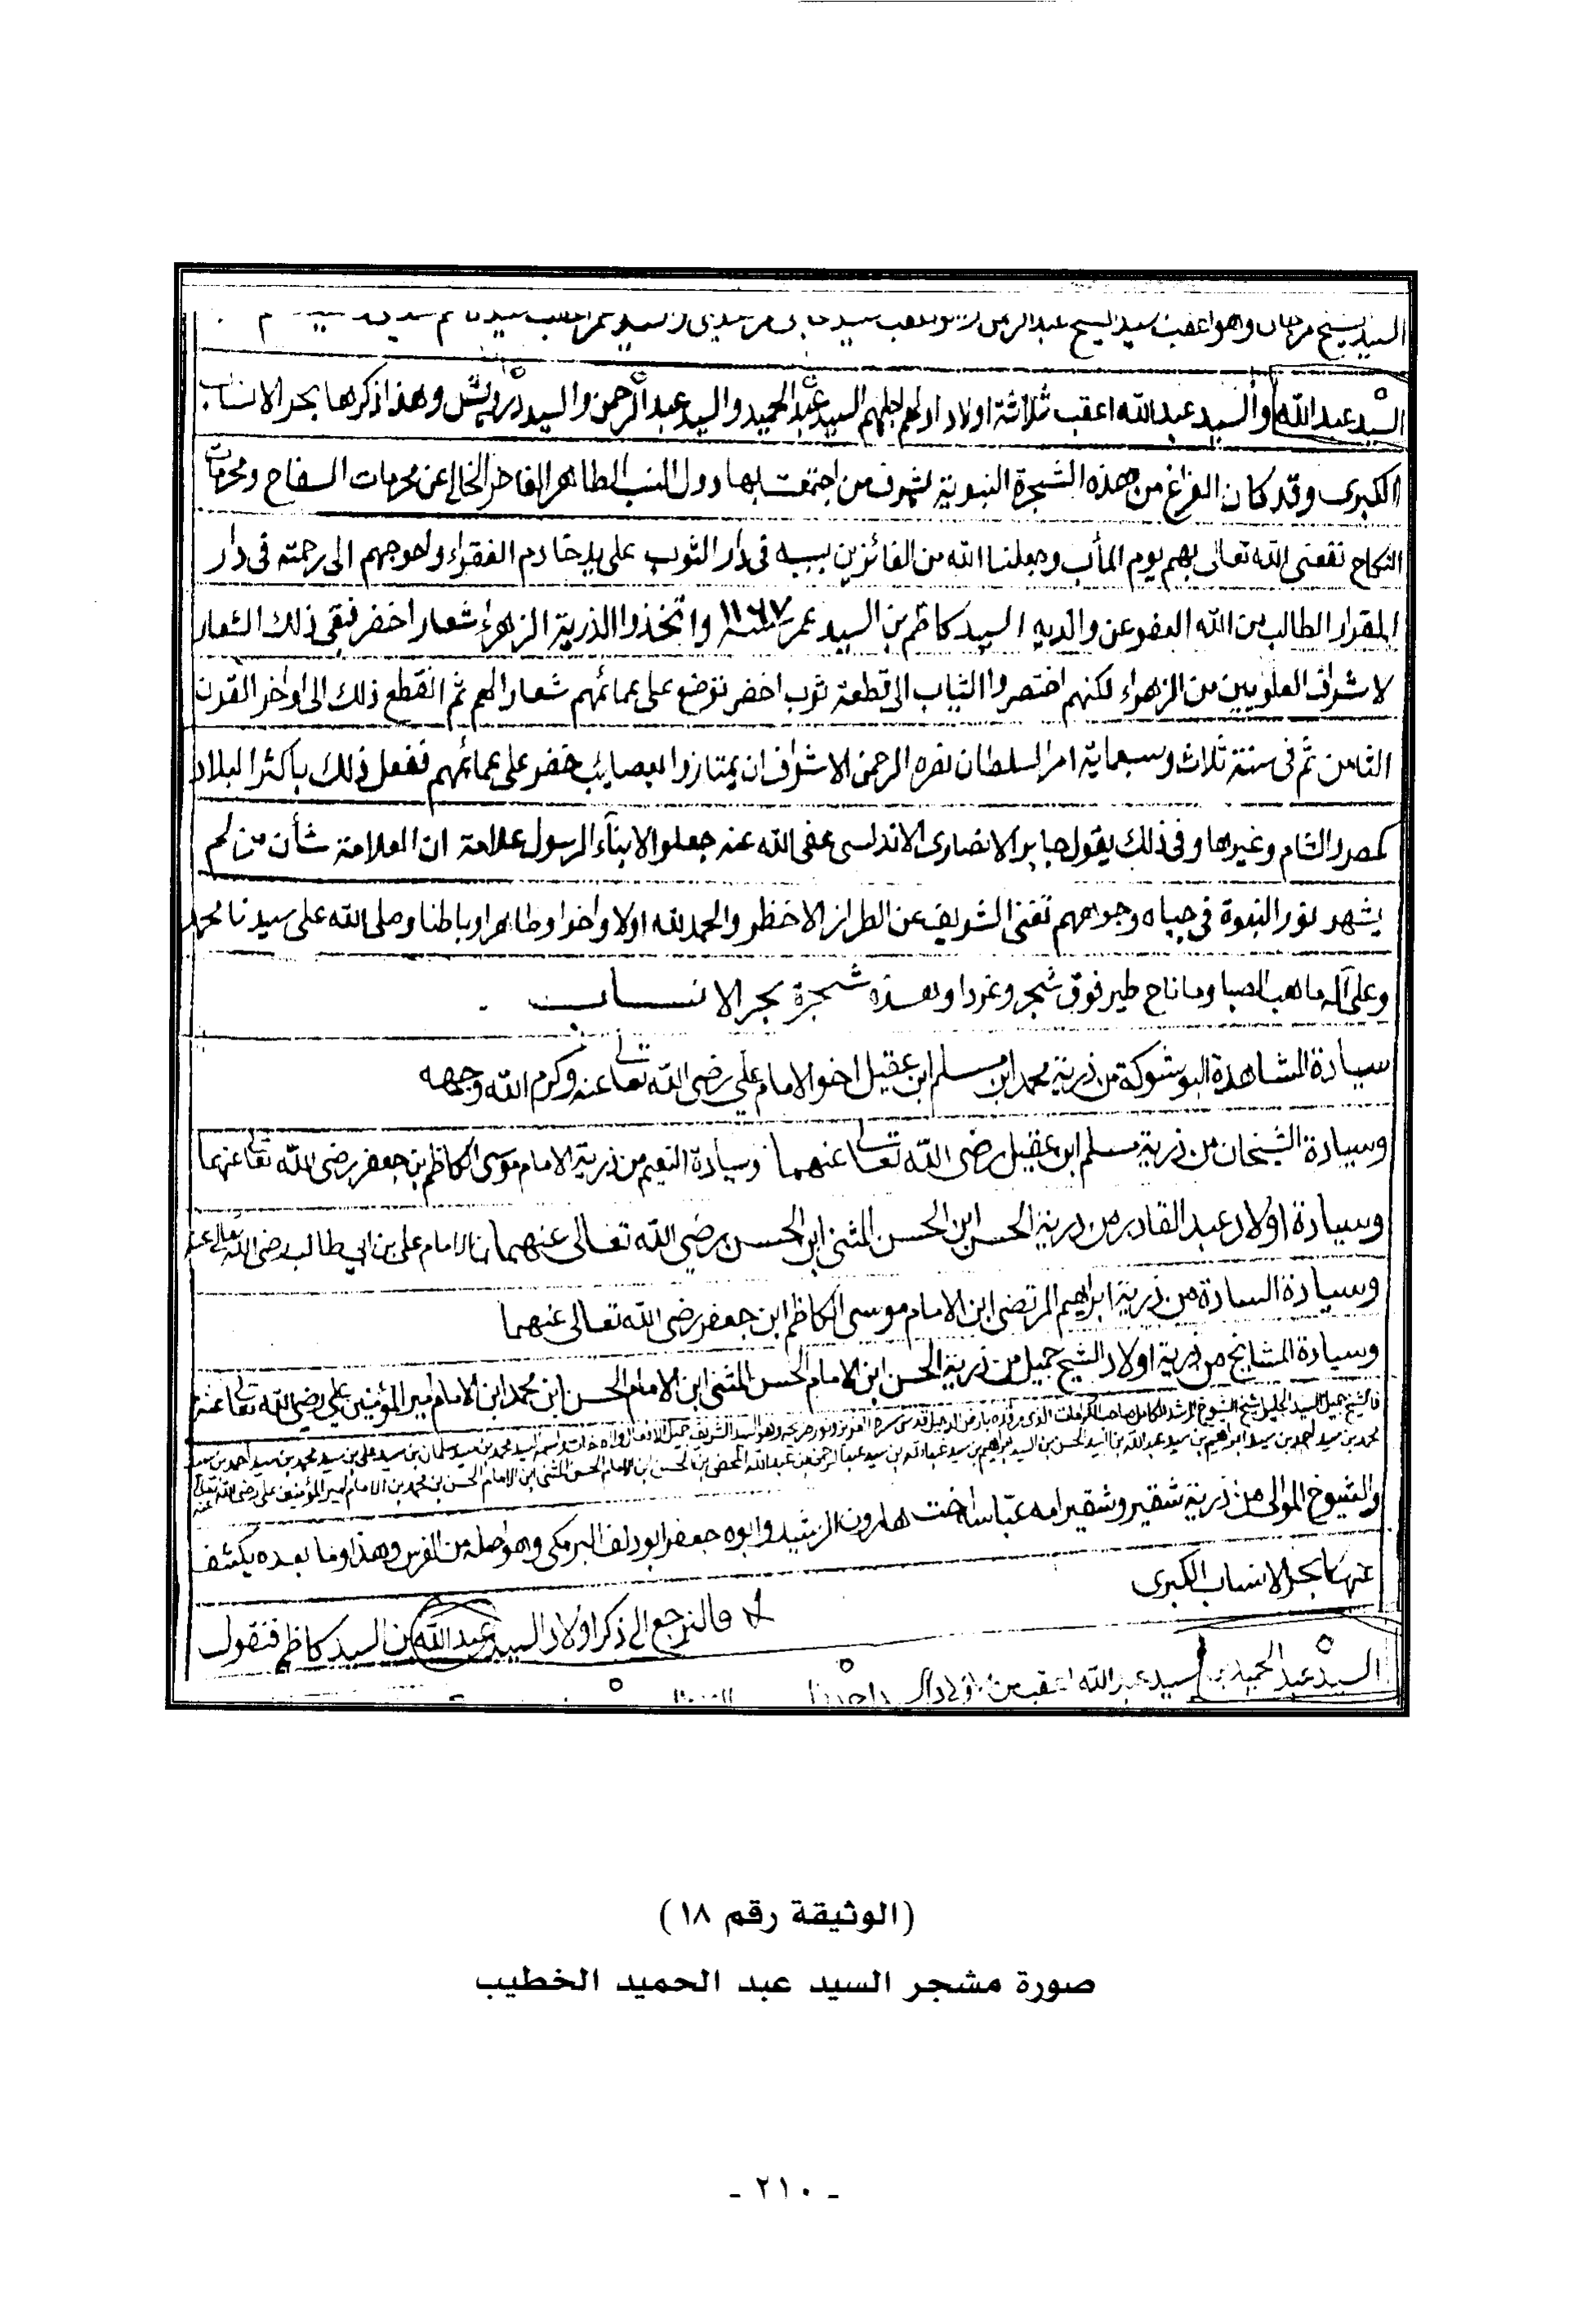 السيد شيخ
السيد عبدالله والسيد عبدالله اعقب ثلاثة اولاد اولهم اجلهم السيد عبد الحميد والسيد عبد الرحمن والسيد درويش وهذا ذكرها بحر الانساب
الكبرى وقد كان الفراغ من هذه الشجرة النبوية لشرف من اجتمعت بها دول النسب الطاهر الفاخر الخالي عن محرمات السفاح ومحرمات
النكاح نفعني الله تعالى بهم يوم المأب وجعلنا الله من الفائزين ببيه في دار الثوب على يد خادم الفقراء واحوجهم الى رحمته في دار
المقرار الطالب من الله العفو عن والديه السيد كاظم بن السيد عمر سنة ١١٦٧ واتخذوا الذرية الزهراء شعار اخضر فبقى ذلك الشعار
لاشراف العلويين من الزهراء لكنهم اختصروا الثياب الى قطعة ثوب اخضر توضع على عمائمهم شعار الهم ثم انقطع ذلك الى اواخر القرن
الثامن ثم في سنة ثلاث وسبعماية امر السلطان نصره الرحمن الاشراف ان يمتازوا بعصايب خضر على عمائمهم ففعل ذلك باكثر البلاد
كمصر والشام وغيرها وفي ذلك يقول جابر الانصارى الاندلسى عفى الله عنه جعلوا لابنآء الرسول علامة ان العلامة شأن من لم
يشهر نور النبوة في جباه وجوههم تغنى الشريف عن الطراز الاخظر والحمد لله اولا واخرا وظاهرا وباطنا وصلى الله على سيدنا محمد
وعلى آله ما هب الصبا وما ناح طير فوق شجر وغردا وهذه شجرة بحر الانساب
سيادة المشاهدة البوشوكة من ذرية محمد ابن مسلم ابن عقيل اخو الامام علي رضى الله تعالى عنه وكرم الله وجهه
وسيادة الشيخان من ذرية مسلم ابن عقيل رضى الله تعالى عنهما وسيادة النعيم من ذرية الامام موسى الكاظم بن جعفر رضى الله تعالى عنهما
وسيادة اولاد عبد القادر من ذرية الحسن ابن الحسن المثنى ابن الحسن رضي الله تعالى عنهما بن الامام على بن ابي طالب رضى الله تعالى عنه
وسيادة السادة من ذرية ابراهيم المرتضى ابن الامام موسى الكاظم ابن جعفر رضى الله تعالى عنهما
وسيادة المشايخ من ذرية اولاد الشيخ جميل من ذرية الحسن ابن الامام الحسن المثنى ابن الامام الحسن ابن محمد ابن الامام امير المؤمنين علي رضي الله تعالى عنه
فالشيخ جميل السيد الجليل شيخ الشيوخ المرشد الكامل صاحب الكرامات الذي
محمد بن سيد احمد بن سيد ابراهيم بن سيد عبدالله بن السيد الحسن بن السيد ابراهيم بن سيد
والشيوخ الموالى من ذرية شقير وشقير امه عباسه اخت هارون الرشيد وابوه جعفر ابو دلف البرمكي وهو اصله من الفرس وهذا وما بعده يكشف
عنها بحر الانساب الكبرى
فالنرجع الى ذكر اولاد السيد عبدالله بن السيد كاظم فنقول
السيد عبد الحميد بن سيد عبدالله اعقب من اولاد
(الوثيقة رقم ١٨)
صورة مشجر السيد عبد الحميد الخطيب
- ٢١٠ -